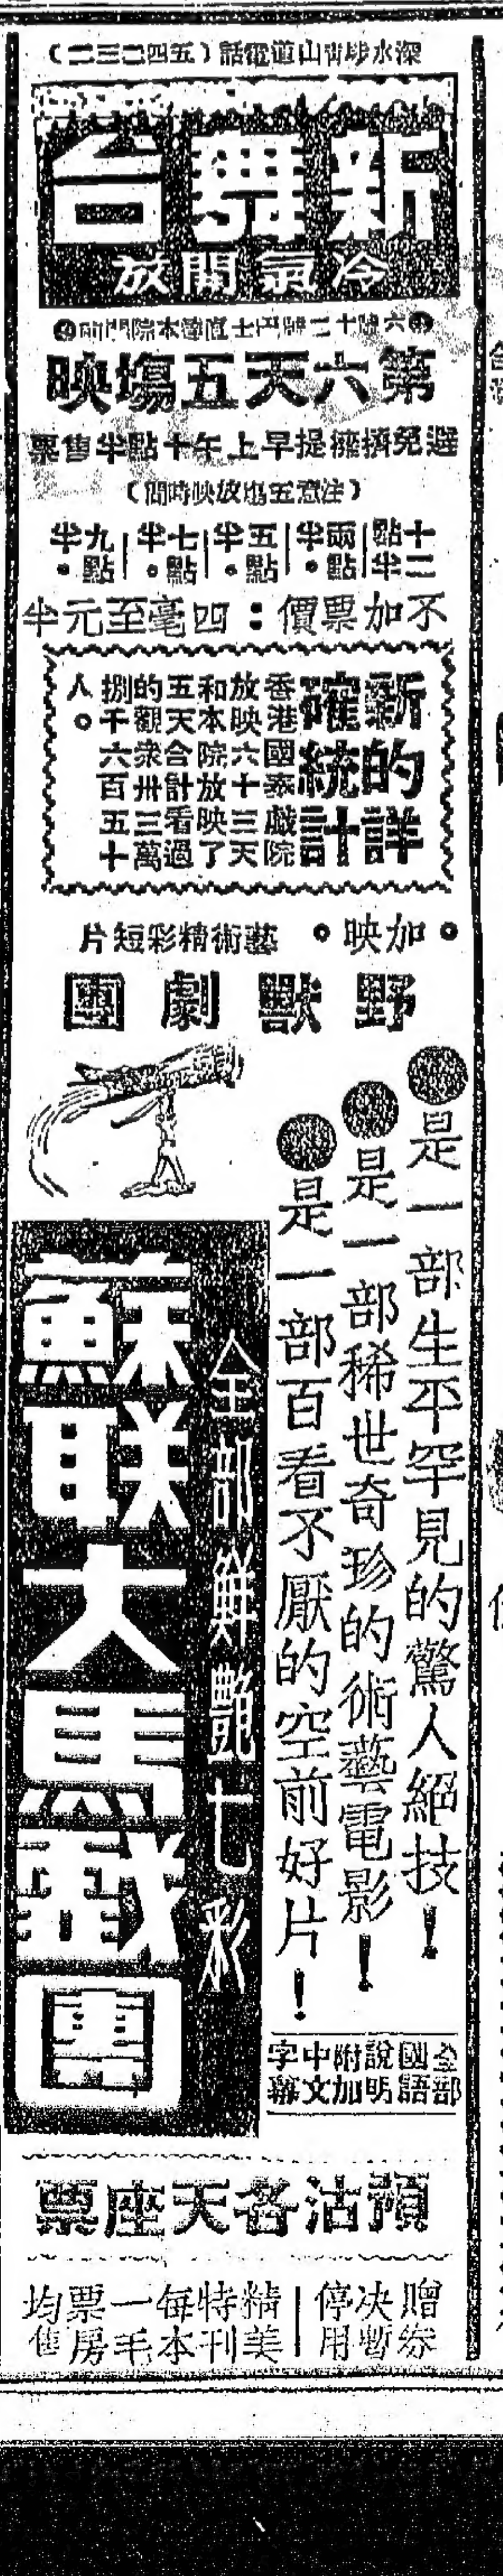 深水埗青山道電話（五四二三二）
新舞台
冷氣開放
●六號十二號巴士直達本院門前●
第六天五場映
避免擠擁提早上午十點半售票
（注意五場放映時間）
十二點半｜兩點半。｜五點半。｜七點半。｜九點半。
不加票價：四毫至元半
新的詳確統計
香港國泰戲院
放映六十三天
和本院放映了
五天合計看過
的觀衆卅三萬
捌千六百五十
人。
。加映。藝術精彩短片
野獸劇團
●是一部生平罕見的驚人絕技！
●是一部稀世奇珍的術藝電影！
●是一部百看不厭的空前好片！
全部國語說明附加中文字幕
全部鮮艷七彩
蘇联大馬戲團
預沽各天座票
贈券決暫停用｜精美特刊每本一毛票房均售